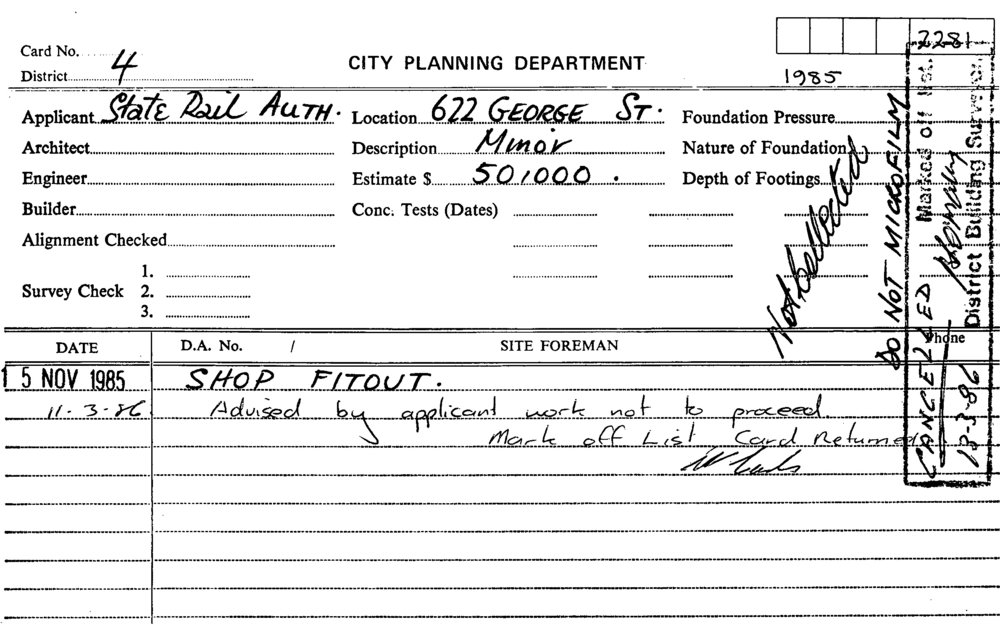 2281
Card No.
District 4
CITY PLANNING DEPARTMENT
1985
Applicant State Rail AUTH. Location 622 GEORGE ST. Foundation Pressure
Architect Description Minor Nature of Foundation
Engineer Estimate $ 50,000. Depth of Footings
Builder Conc. Tests (Dates)
Alignment Checked
1.
Survey Check 2.
3.
Not Collected
DO NOT MICROFILM
CANCELLED Marked off list.
District Building Surveyor.
13-3-86
DATE D.A. No. / SITE FOREMAN Phone
15 NOV 1985 SHOP FITOUT.
11-3-86 Advised by applicant work not to proceed.
Mark off List Card Returned